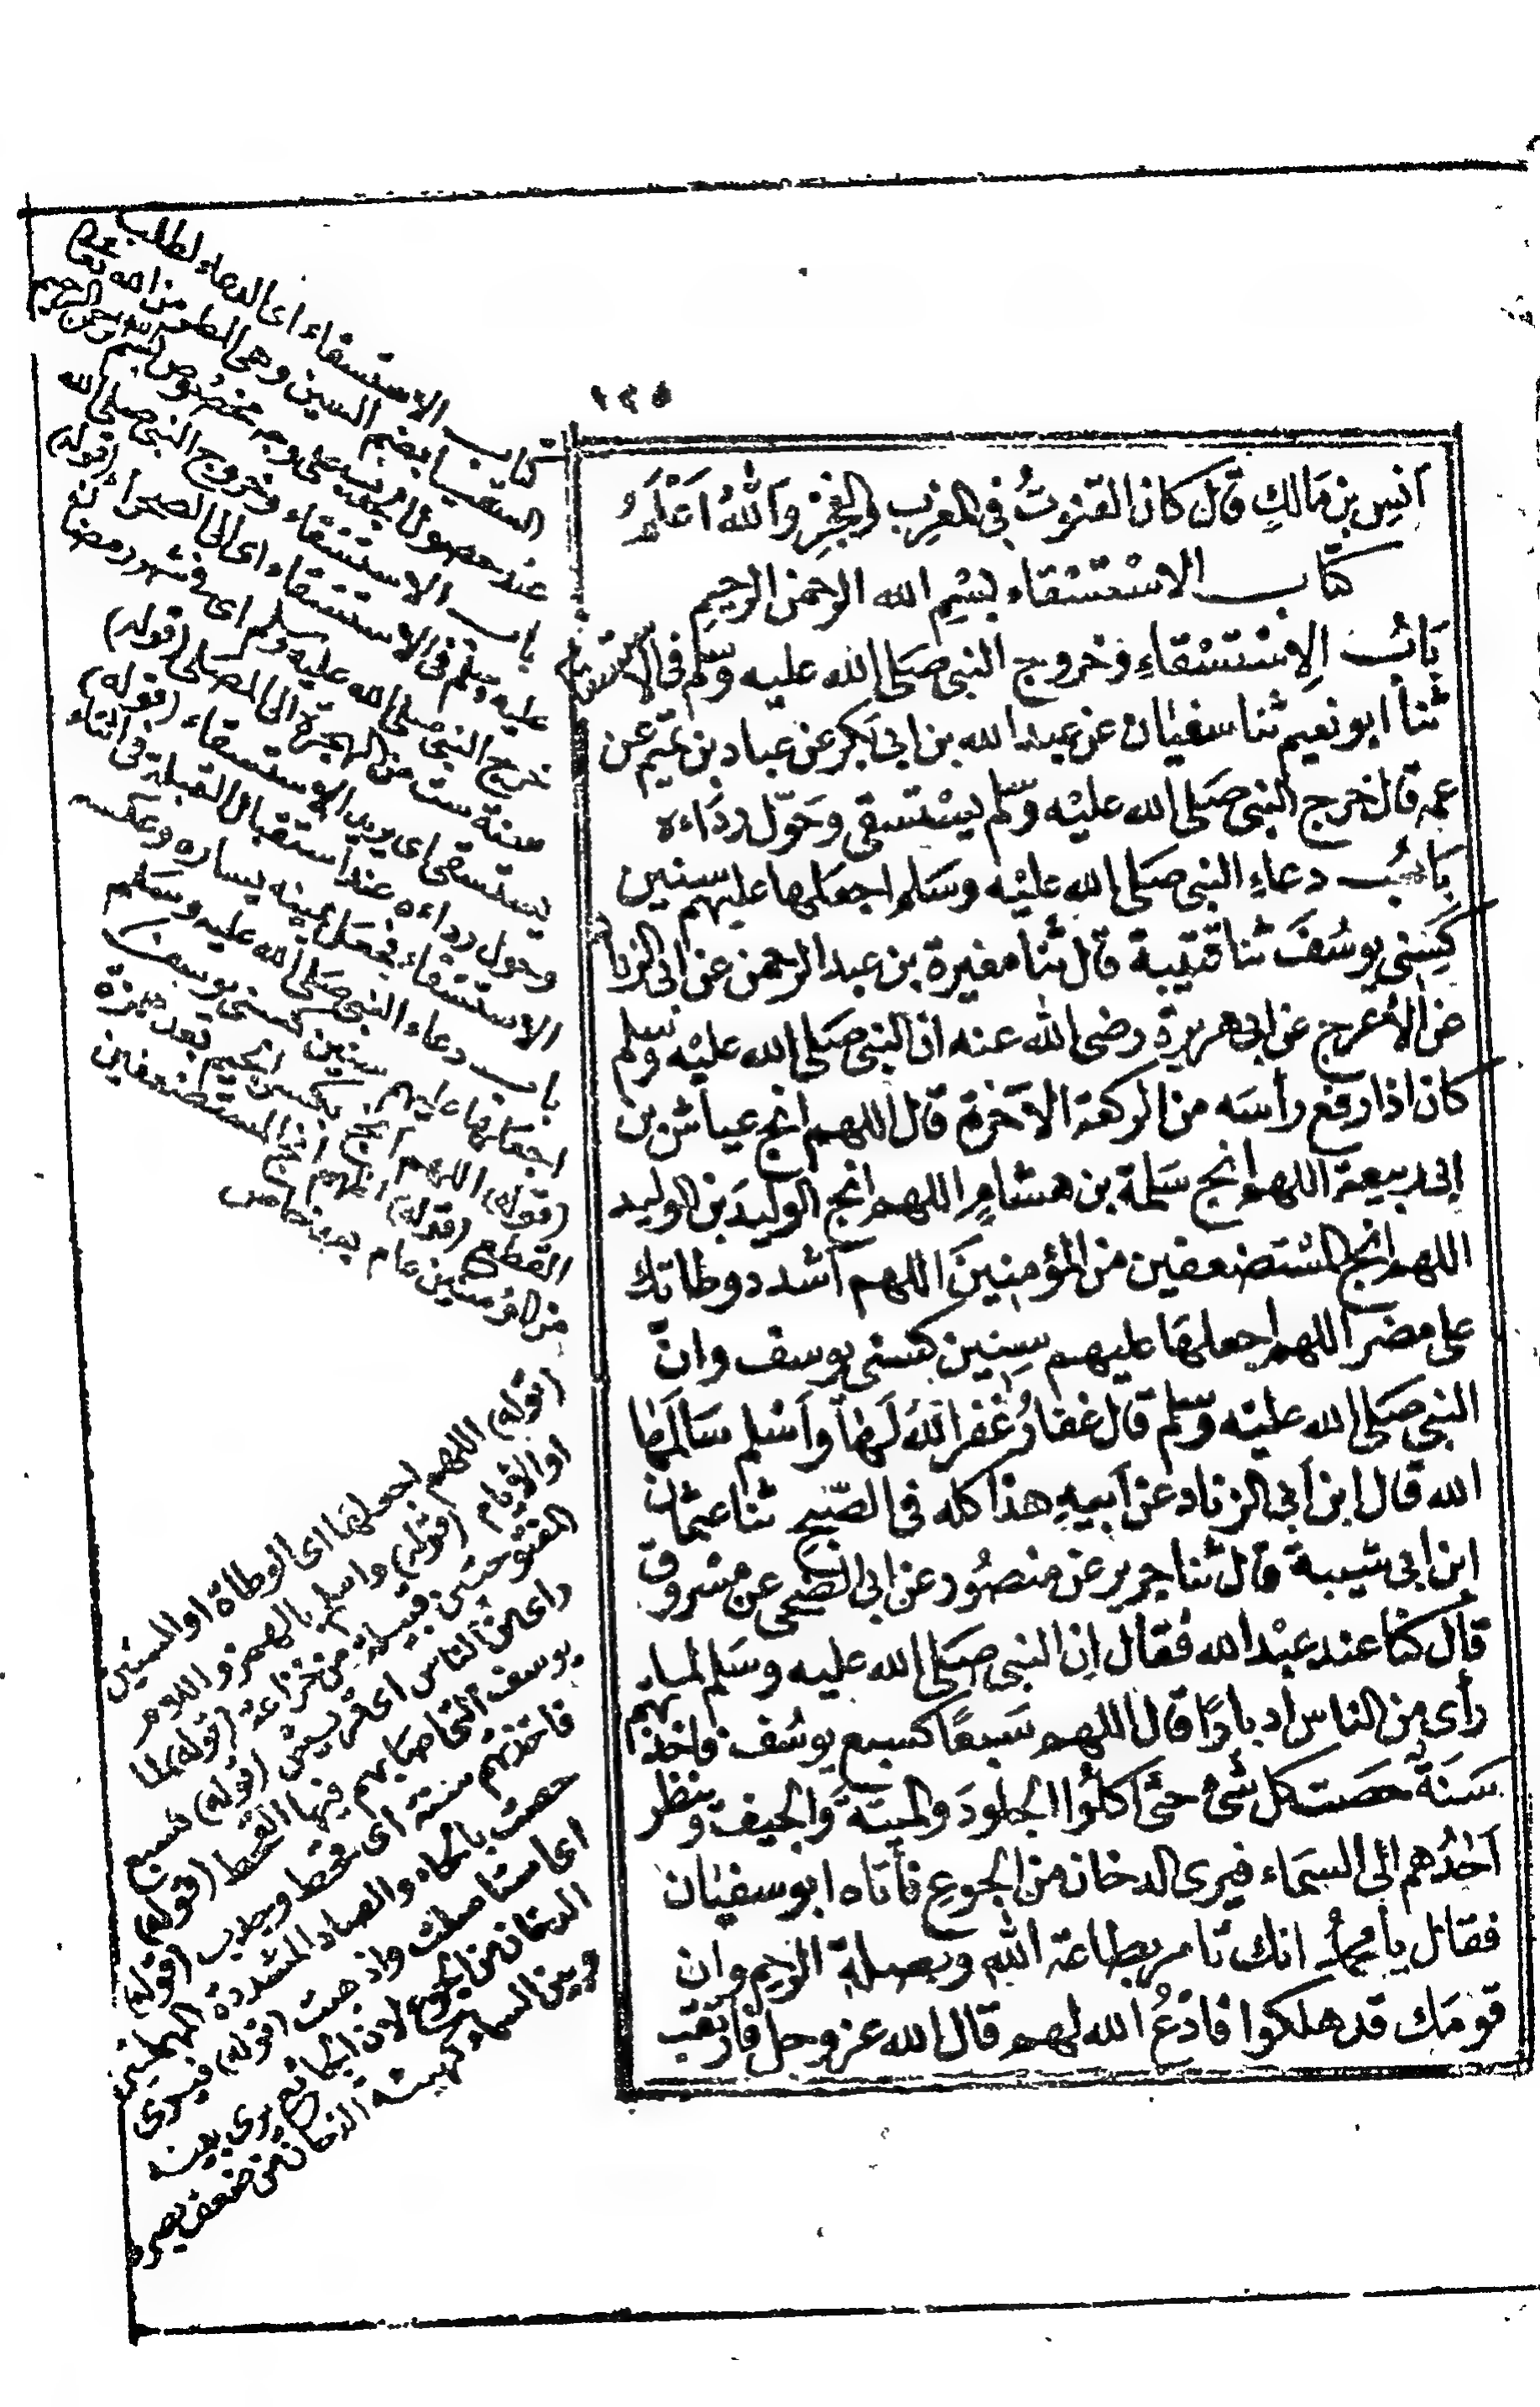 ١٢٥
اَنَسِ بنِ مَالكٍ قَالَ كان القنوتُ فى المغرِب والفجْرِ وَاَللّٰهُ اَعْلَمُ
كتاب الاسْتسْقاء بِسْمِ الله الرحمن الرحيمِ
بَابُ الاِسْتسْقاءِ وخروج النبى صَلى الله عليه وسلم فى الاستسقاء
ثنا ابو نعيم ثنا سفيان عن عبد الله بن ابى بَكرٍ عن عباد بن تميم عن
عمه قال خرج النبى صَلى الله عليْه وسلم يسْتسقى وَحَوّل ردَاءه
بَابُ دعاءِ النبى صَلى الله عليْه وسَلم اجعَلها عليهم سنين
كسِنى يوسُفَ ثنا قتيبة قال ثنا مغيرة بن عبد الرحمن عن ابى الزناد
عن الأعرج عن ابى هريرة رضى الله عنه ان النبى صَلى الله عليْه وسلم
كان اذا رفع رأسَه من الركعة الآخرة قال اللهم انج عياش بن
ابى ربيعة اللهم انج سَلمة بن هشامٍ اللهم انج الوليدَ بن الوليد
اللهم انج المسْتضعفين من المؤمِنينَ اللهم اشدد وطاتك
على مضر اللهم اجعلهَا عليهم سِنِين كسنى يوسف وان
النبى صَلى الله عليْه وسلم قال غفارُ غفر اللهُ لَهَا وأسْلم سَالمَهَا
الله قال ابن اَبى الزناد عن اَبيهِ هذا كله فى الصّبحِ ثنا عثمان
ابن ابى شيبة قال ثنا جرير عن منصُور عن ابى الضحى عن مسْروق
قال كنا عند عبْد الله فقال اِن النبى صَلى الله عليه وسَلم لما
رأى من الناس ادبارًا قال اللهم سَبعًا كسبع يوسُف فاخذتهم
سَنَةٌ حَصت كل شئ حتّى اكلُوا الجلودَ والميتةَ وَالجيف وينظر
اَحَدُهم الى السمَاء فيرى الدخان من الجوعِ فأتاه ابو سفيان
فقال يا محمدُ انك تامر بطاعة اللهِ وبصلة الرحِم وان
قومَك قد هلكوا فادْعُ الله لهم قال الله عز وجل فارتقب
كتاب الاستسقاء اى الدعاء لطلب
السقيا بضم السين وهى المطر من الله تعالى
عند حصول الجدب على وجه مخصوص بسم الله الرحمن الرحيم
باب الاستسقاء وخروج النبى صلى الله
عليه وسلم فى الاستسقاء اى الى الصحراء (قوله)
خرج النبى صلى الله عليه وسلم اى فى شهر رمضان
سنة ست من الهجرة الى المصلى (قوله)
يستسقى اى يريد الاستسقاء (قوله)
وحول رداءه عند استقبال القبلة فى اثناء
الاستسقاء فجعل يمينه يساره وعكسه
باب دعاء النبى صَلى الله عليه وسَلم
اجعلها عليهم سنين كسنى يوسف
(قوله) اللهم انج بكسر الجيم بعد همزة
القطع (قوله) اللهم انج المستضعفين
من المؤمنين عام بعد خاص
(قوله) اللهم اجعلها اى الوطاة او السنين
او الايام (قوله) واسلم بالهمز واللام
المفتوحتين قبيلة من خزاعة (قوله) لما
راى من الناس اى قريش (قوله) كسبع
يوسف التى اصابهم فيها القحط (قوله)
فاخذتهم سنة اى قحط وجدب (قوله)
حصت بالحاء والصاد المشددة المهملتين
اى استاصلت واذهبت (قوله) فيرى
الدخان من الجوع لان الجائع يرى بينه
وبين السماء كهيئة الدخان من ضعف بصره